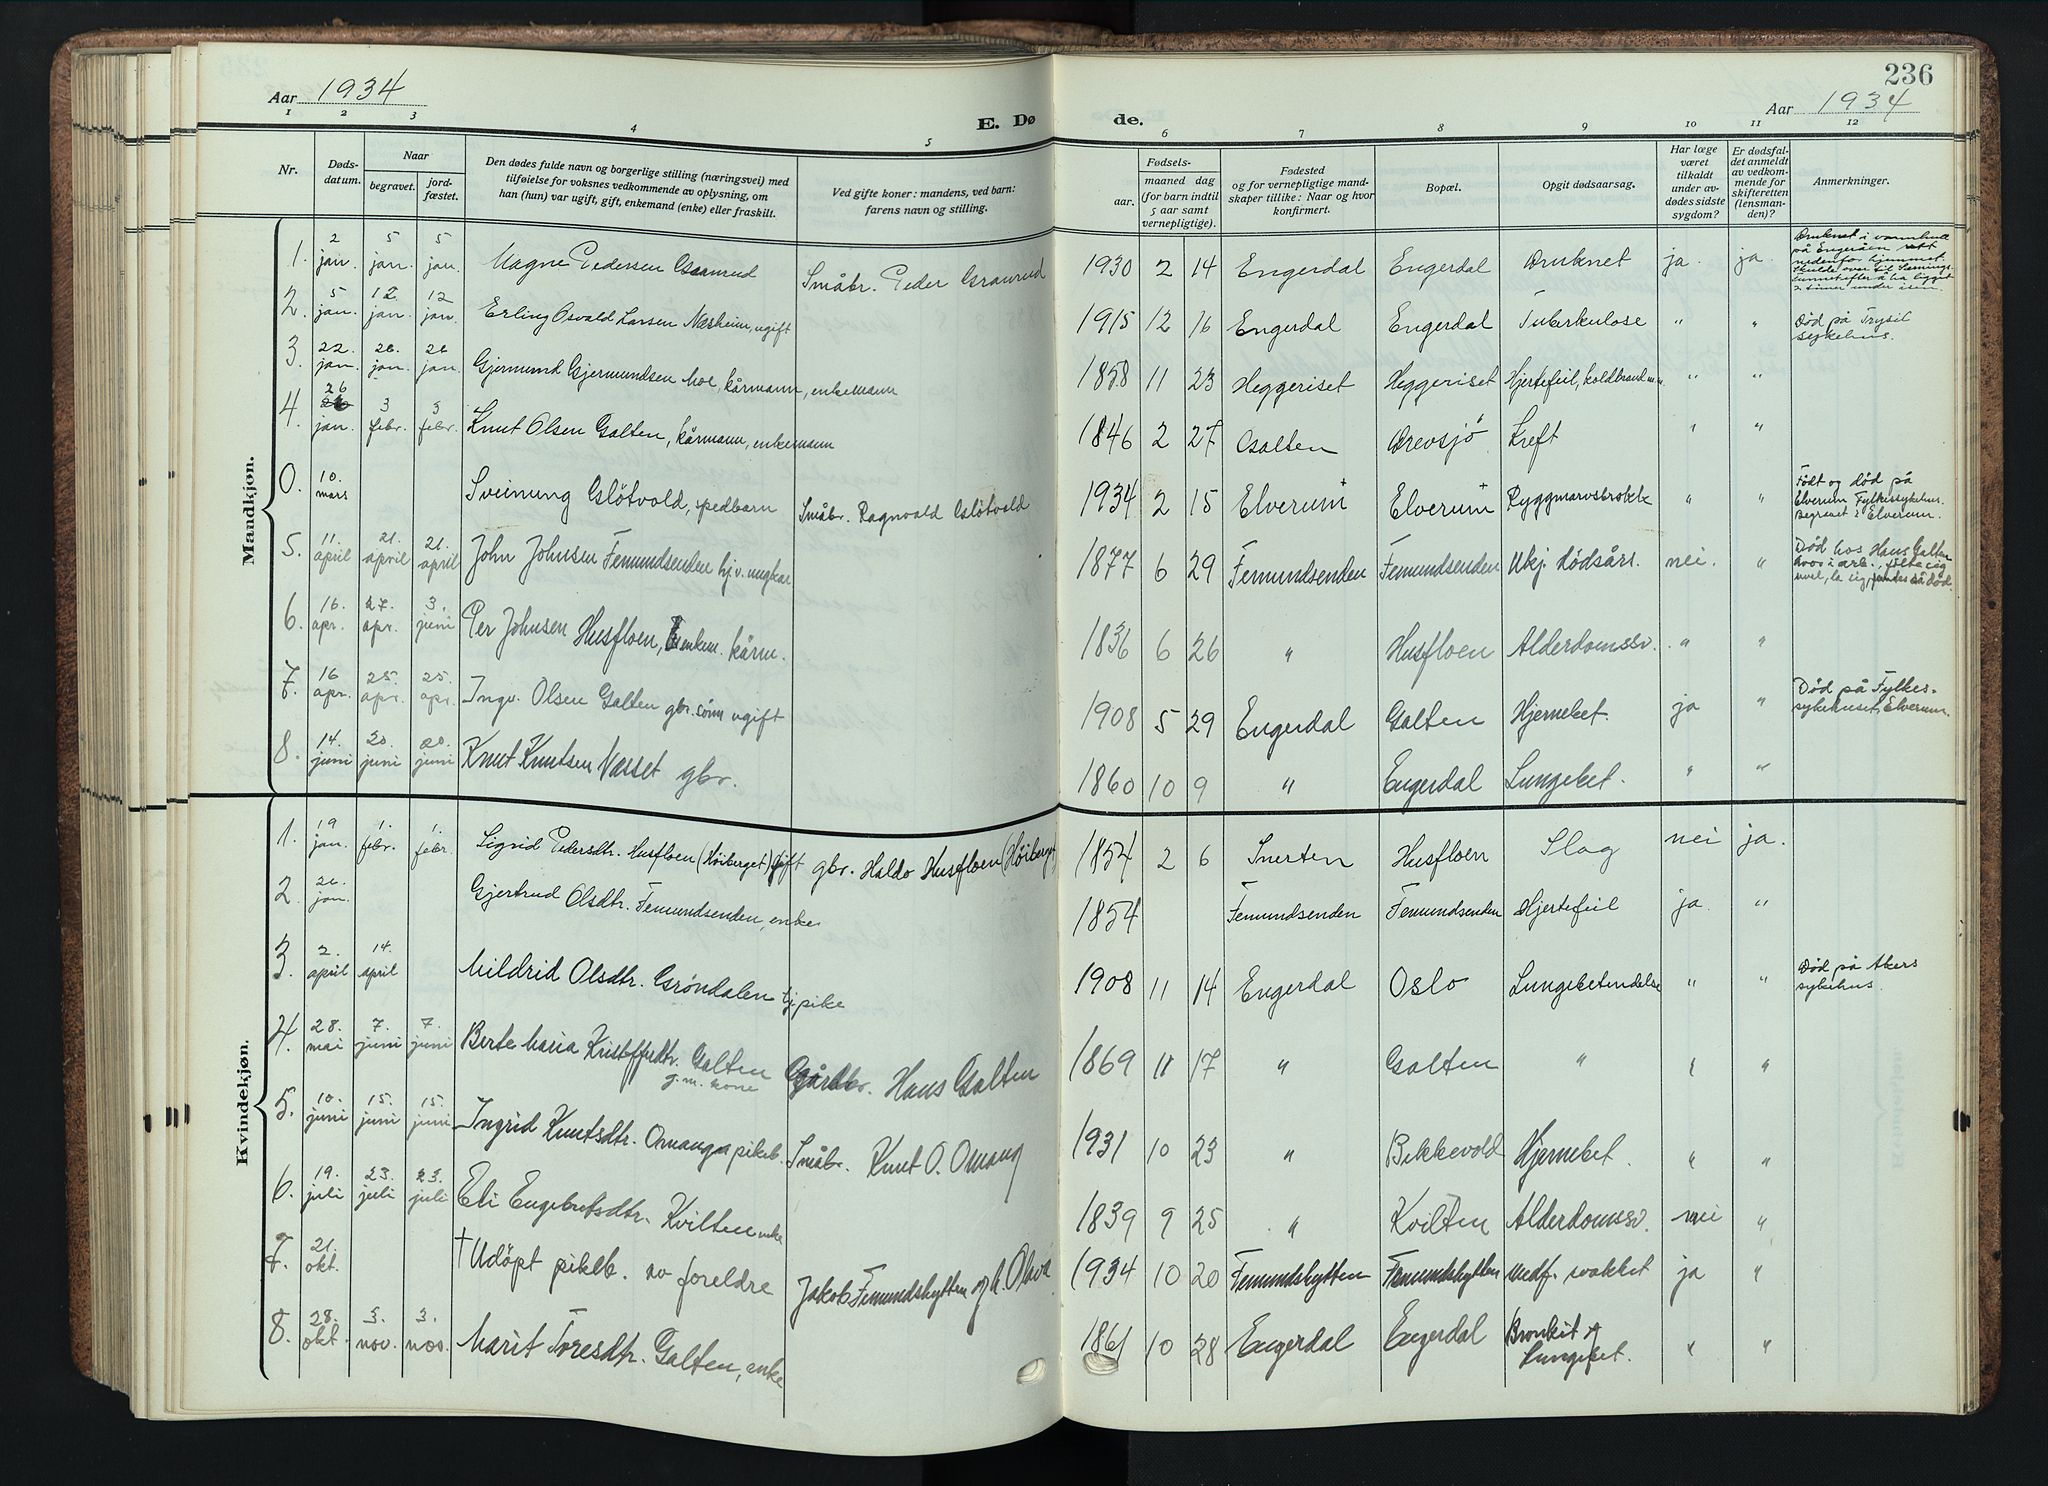 236
Aar 1934
Aar 1934
E. Dø
de.
1 2 3 4 5 6 7 8 9 10 11 12
Nr.
Døds-
datum.
Naar
begravet.
jord-
fæstet.
Den dødes fulde navn og borgerlige stilling (næringsvei) med
tilføielse for voksnes vedkommende av oplysning, om
han (hun) var ugift, gift, enkemand (enke) eller fraskilt.
Ved gifte koner: mandens, ved barn:
farens navn og stilling.
Fødsels-
aar.
maaned dag
(for barn indtil
5 aar samt
vernepligtige).
Fødested
og for vernepligtige mand-
skaper tillike: Naar og hvor
konfirmert.
Bopæl.
Opgit dødsaarsag.
Har læge
været
tilkaldt
under av-
dødes sidste
sygdom?
Er dødsfal-
det anmeldt
av vedkom-
mende for
skifteretten
(lensman-
den)?
Anmerkninger.
Maandkjøn.
1. 2 jan. 5 jan. 5 jan. Magne Pedersen Graanrud Småbr. Peder Graanrud 1930 2 14 Engerdal Engerdal Druknet ja. ja. Druknet i
på Engeråen rett
nedenfor hjemmet.
efter å ha ligget
2 timer under isen.
2. 5 jan. 12. jan. 12 jan. Erling Osvald Larsen Næsheim, ugift 1915 12 16 Engerdal Engerdal Tuberkulose " " Død på Trysil
sykehus.
3. 22. jan. 26. jan. 26 jan. Gjermund Gjermundsen Moe, kårmann, enkemann 1858 11 23 Heggeriset Heggeriset Hjertefeil, koldbrand m.m. " "
4. 26 jan. 3 febr. 3 febr. Knut Olsen Galten, kårmann, enkemann 1846 2 27 Galten Drevsjö Kreft " "
0. 10. mars Sveinung Glötvold, spedbarn Småbr. Ragnvald Glötvold 1934 2 15 Elverum Elverum Ryggmarvsbrokk " " Født og død på
Elverum Fylkessykehus.
Begravet i Elverum.
5. 11. april 21. april 21. april John Johnsen Femundsenden hj.v. ungkar 1877 6 29 Femundsenden Femundsenden Ukj. dødsårs. nei. " Død hos Hans Galten
uvel, la sig, død.
6. 16. apr. 27. apr. 3. juni Per Johnsen Husfloen, enkem. kårm. 1836 6 26 " Husfloen Alderdomssv. " "
7. 16 apr. 25. apr. 25. apr. Ingv. Olsen Galten gbr. sønn ugift 1908 5 29 Engerdal Galten Hjernebet. ja " Død på Fylkes-
sykehuset, Elverum.
8. 14. juni 20. juni 20. juni Knut Knutsen Næsset gbr. 1860 10 9 " Engerdal Lungebet. " "
Kvindekjøn.
1. 19 jan. 1. febr. 1. febr. Sigrid Pedersdtr. Husfloen (Höiberget) gift gbr. Haldo Husfloen (Höiberget) 1854 2 6 Snerten Husfloen Slag nei ja.
2. 26. jan. Gjertrud Olsdtr. Femundsenden, enke 1854 Femundsenden Femundsenden Hjertefeil ja. "
3. 2. april 14. april Mildrid Olsdtr. Gröndalen tj. pike 1908 11 14 Engerdal Oslo Lungebetendelse " " Død på Akers
sykehus.
4. 28. mai 7. juni 7. juni Berte Maria Kristoffersdtr. Galten
g.m. kone Gårdbr. Hans Galten 1869 11 17 " Galten " " "
5. 10. juni 15. juni 15. juni Ingrid Knutsdtr. Omang pikeb. Småbr. Knut O. Omang 1931 10 23 " Bekkevold Hjernebet. " "
6. 19. juli 23. juli 23. juli Eli Engebretsdtr. Kvilten enke 1839 9 25 " Kvilten Alderdomssv. nei "
7. 21. okt. † Udöpt pikeb. av foreldre Jakob Femundshytten og h. Olava 1934 10 20 Femundshytten Femundshytten Medf. svakhet ja "
8. 28. okt. 3. nov. 3. nov. Marit Toresdtr. Galten, enke 1861 10 28 Engerdal Engerdal Bronkit og
Lungebet. " "